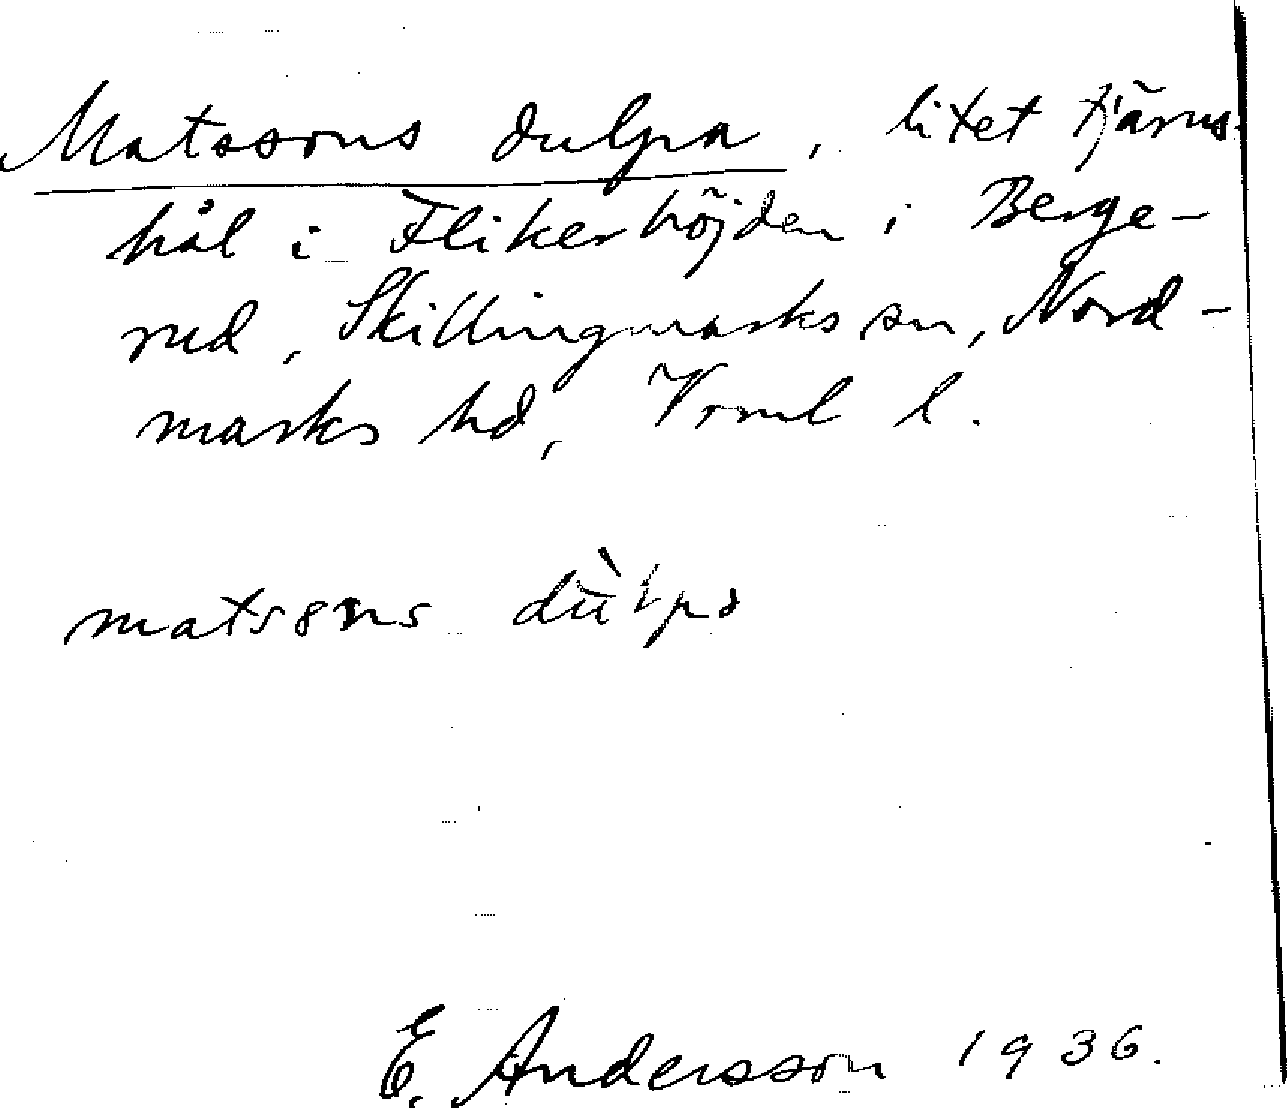 Matssons dulpa, litet tjärns-
hål i Flikerhöjden i Berge-
rud, Skillingmarks sn, Nord-
marks hd, Vrml l.
matsons dùlpa
E. Andersson 1936.